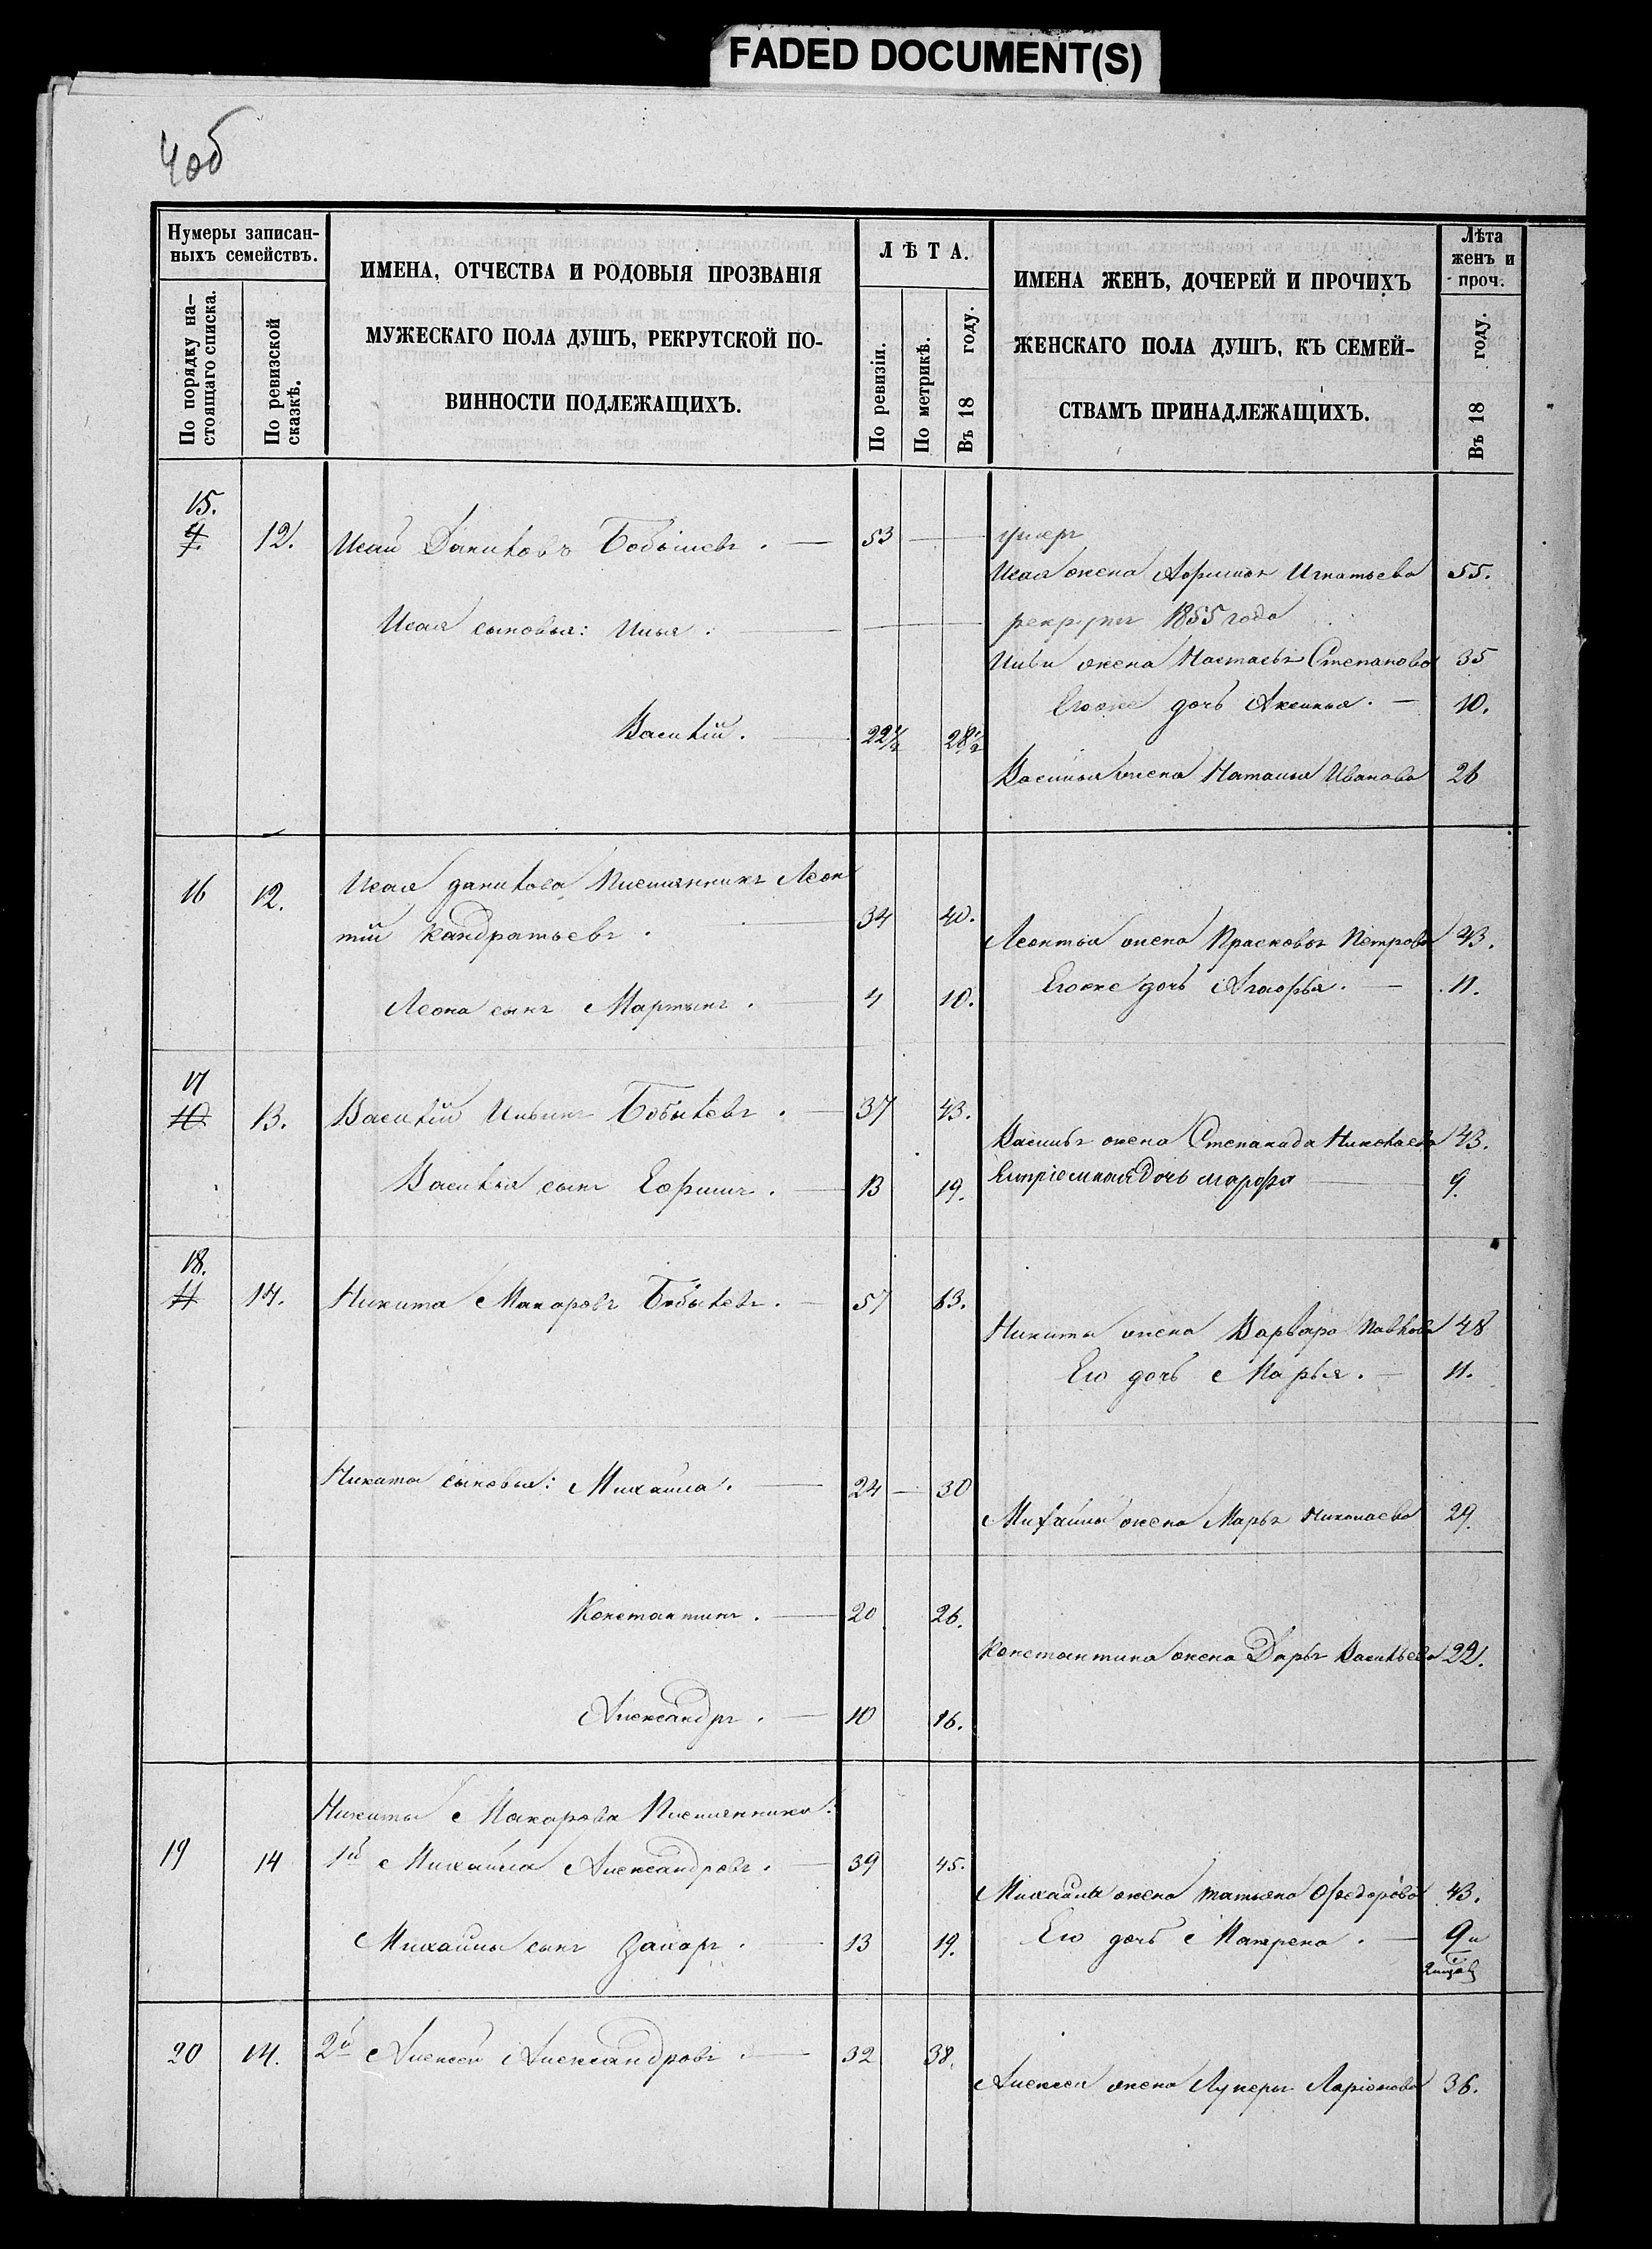 FADED DOCUMENT(S)
4об
Нумеры записан-
ныхъ семействъ.
По порядку на-
стоящаго списка.
По ревизской
сказкѣ.
ИМЕНА, ОТЧЕСТВА И РОДОВЫЯ ПРОЗВАНІЯ
МУЖЕСКАГО ПОЛА ДУШЪ, РЕКРУТСКОЙ ПО-
ВИННОСТИ ПОДЛЕЖАЩИХЪ.
ЛѢТА.
По ревизіи.
По метрикѣ.
Въ 18 году.
ИМЕНА ЖЕНЪ, ДОЧЕРЕЙ И ПРОЧИХЪ
ЖЕНСКАГО ПОЛА ДУШЪ, КЪ СЕМЕЙ-
СТВАМЪ ПРИНАДЛЕЖАЩИХЪ.
Лѣта
женъ и
проч.
Въ 18 году.
15.
12. Исай Даниловъ Бобылевъ. 53 умеръ
Исая жена Афимья Игнатьева 55.
Исая сыновья: Илья. рекрутъ 1855 года
Ильи жена Настасья Степанова 35
Его же дочь Аксинья. 10.
Василій. 22 1/2 28 1/2
Василья жена Наталья Иванова 26
16 12. Исая Данилова Племянникъ Леон
тій Кандратьевъ. 34 40.
Леонтья жена Прасковья Петрова 43.
Его же дочь Агафья. 11.
Леона сынъ Мартынъ. 4 10.
17
10 13. Василій Ильинъ Бобылевъ. 37 43.
Василья жена Степанида Николаева 43.
Василья сынъ Ефимъ. 13 19. дочь марфа 9.
18.
11 14. Никита Макаровъ Бобылевъ. 57 63.
Никиты жена Варвара Павлова 48
Его дочь Марья. 11.
Никиты сыновья: Михайла. 24 30
Михайлы жена Марья Николаева 29.
Константинъ. 20 26.
Константина жена Дарья Васильева 22.
Александръ. 10 16.
Никиты Макарова Племянники:
19 14 1й Михайла Александровъ. 39 45.
Михайлы жена татьяна Федорова 43.
Михайлы сынъ Захаръ. 13 19. Его дочь Матрена. 9
20 14. 2й Алексей Александровъ. 32 38.
Алексея жена Лукерья Ларіонова 36.